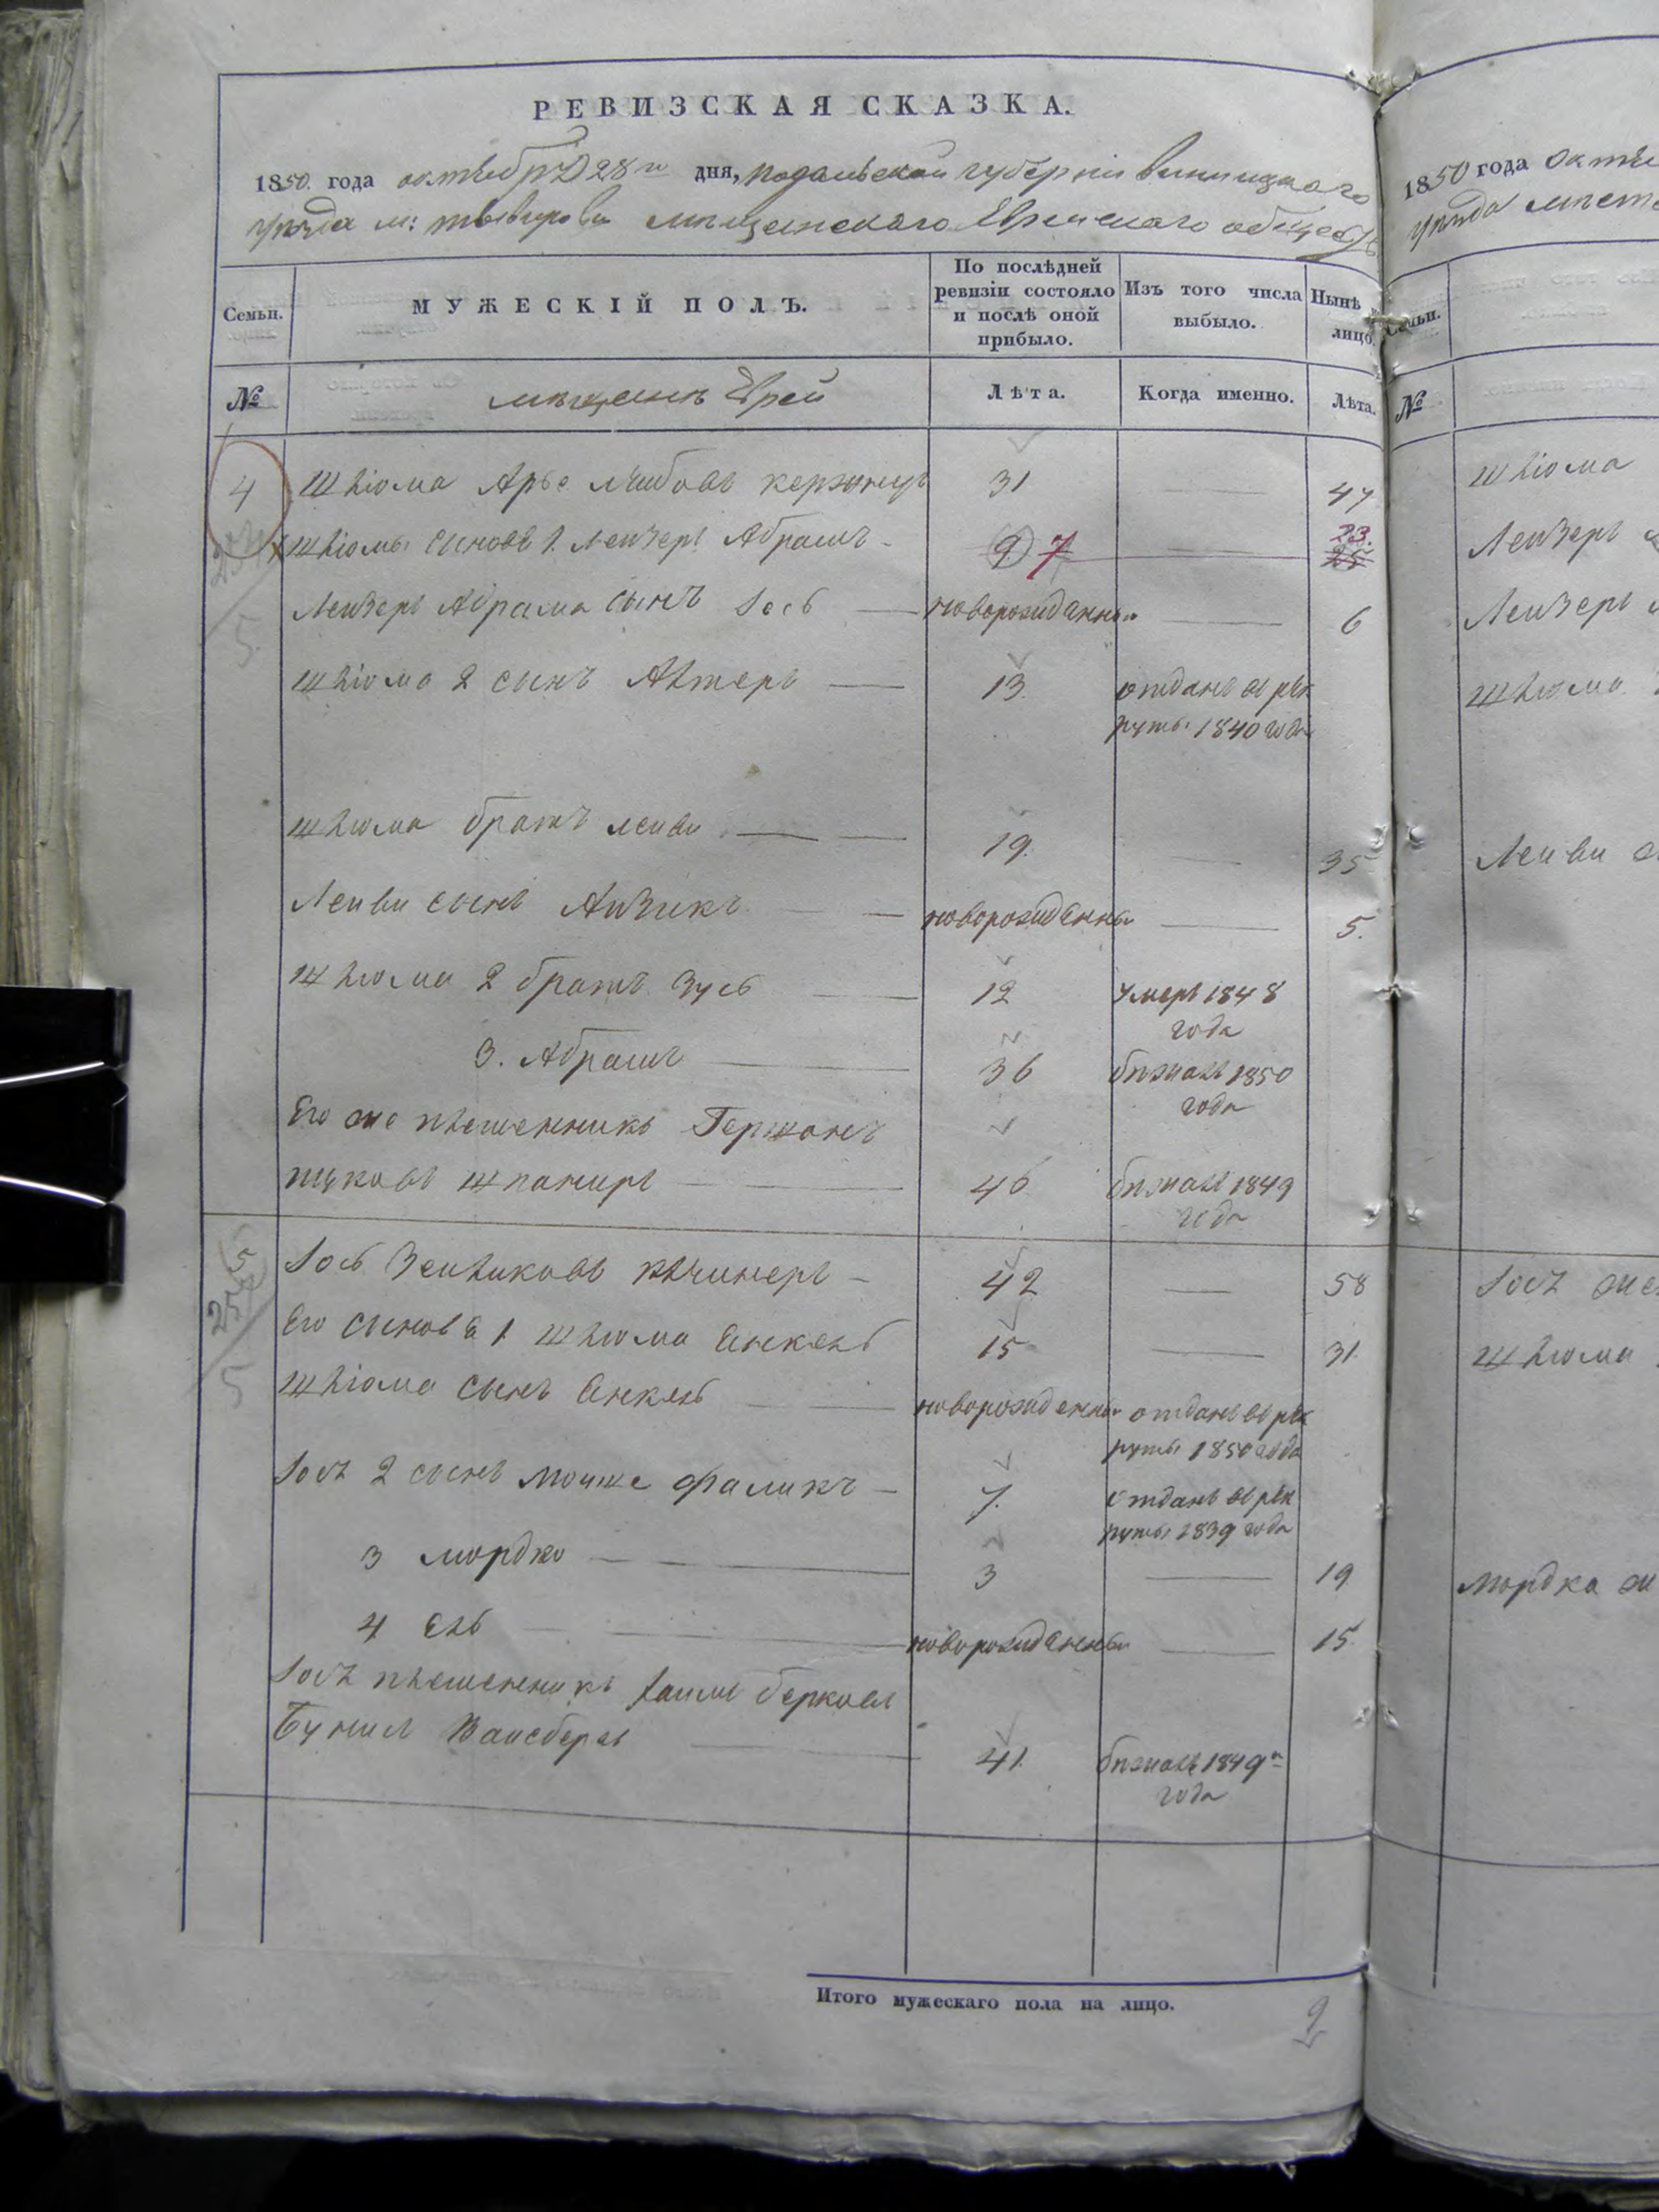 РЕВИЗСКАЯ СКАЗКА.
1850. года октября 28го дня, подольской губерніи винницкаго
уезда м: тывирова мещенскаго Еврейскаго общества
Семьи.
МУЖЕСКІЙ ПОЛЪ.
По послѣдней ревизіи состояло и послѣ оной прибыло.
Изъ того числа выбыло.
Нынѣ лицо.
№
мещенъ Еврей
Лѣта.
Когда именно.
Лѣта.
4 Шліома Арье Лейбовъ 31 47
Шліомы сыновя 1. Лейзеръ Абрамъ 9 7 23. 25
Лейзеръ Абрама сынъ Іось новорожденный 6
Шліома 2 сынъ Алтеръ 13. отданъ въ рек
руты 1840 года
Шліома братъ Лейви 19. 35
Лейви сынъ Айзикъ новорожденный 5.
Шліома 2 братъ Зусь 12 умеръ 1848
года
3. Абрамъ 36 бежалъ 1850
года
Его же племенникъ Гершонъ
ицковъ шпаниръ 46 бежалъ 1849
года
5 Іось Зейликовъ клейнеръ 42 58
Его сыновя 1 Шліома Янкель 15 31
Шліома сынъ Янкель новорожденный отданъ въ рек
руты 1850 года
Іося 2 сынъ Мошке Фаликъ 7. отданъ въ рек
руты 1839 года
3 мордко 3 19
4 Ель новорожденный 15.
Іося племенникъ Хаимъ берковъ
Бунил Вайсбергъ 41. бежалъ 1849го
года
Итого мужескаго пола на лицо. 9
1850 года
уезда
№
Шліома
Лейзеръ
Лейзеръ
Шліома
Лейви
Іося
Шліома
Мордка